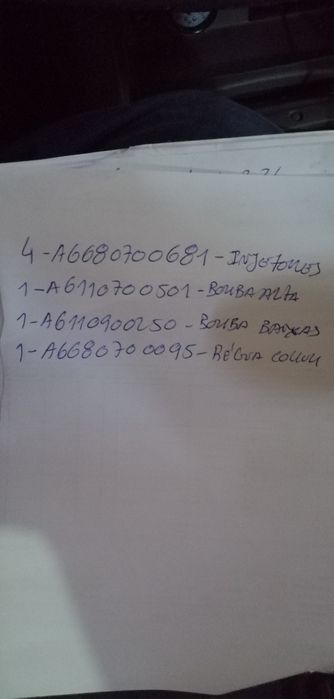 4-A6680700681-INJETORES
1-A6110700501-BOMBA ALTA
1-A6110900250-BOMBA BAIXAS
1-A6680700095-RÉGUA COMM